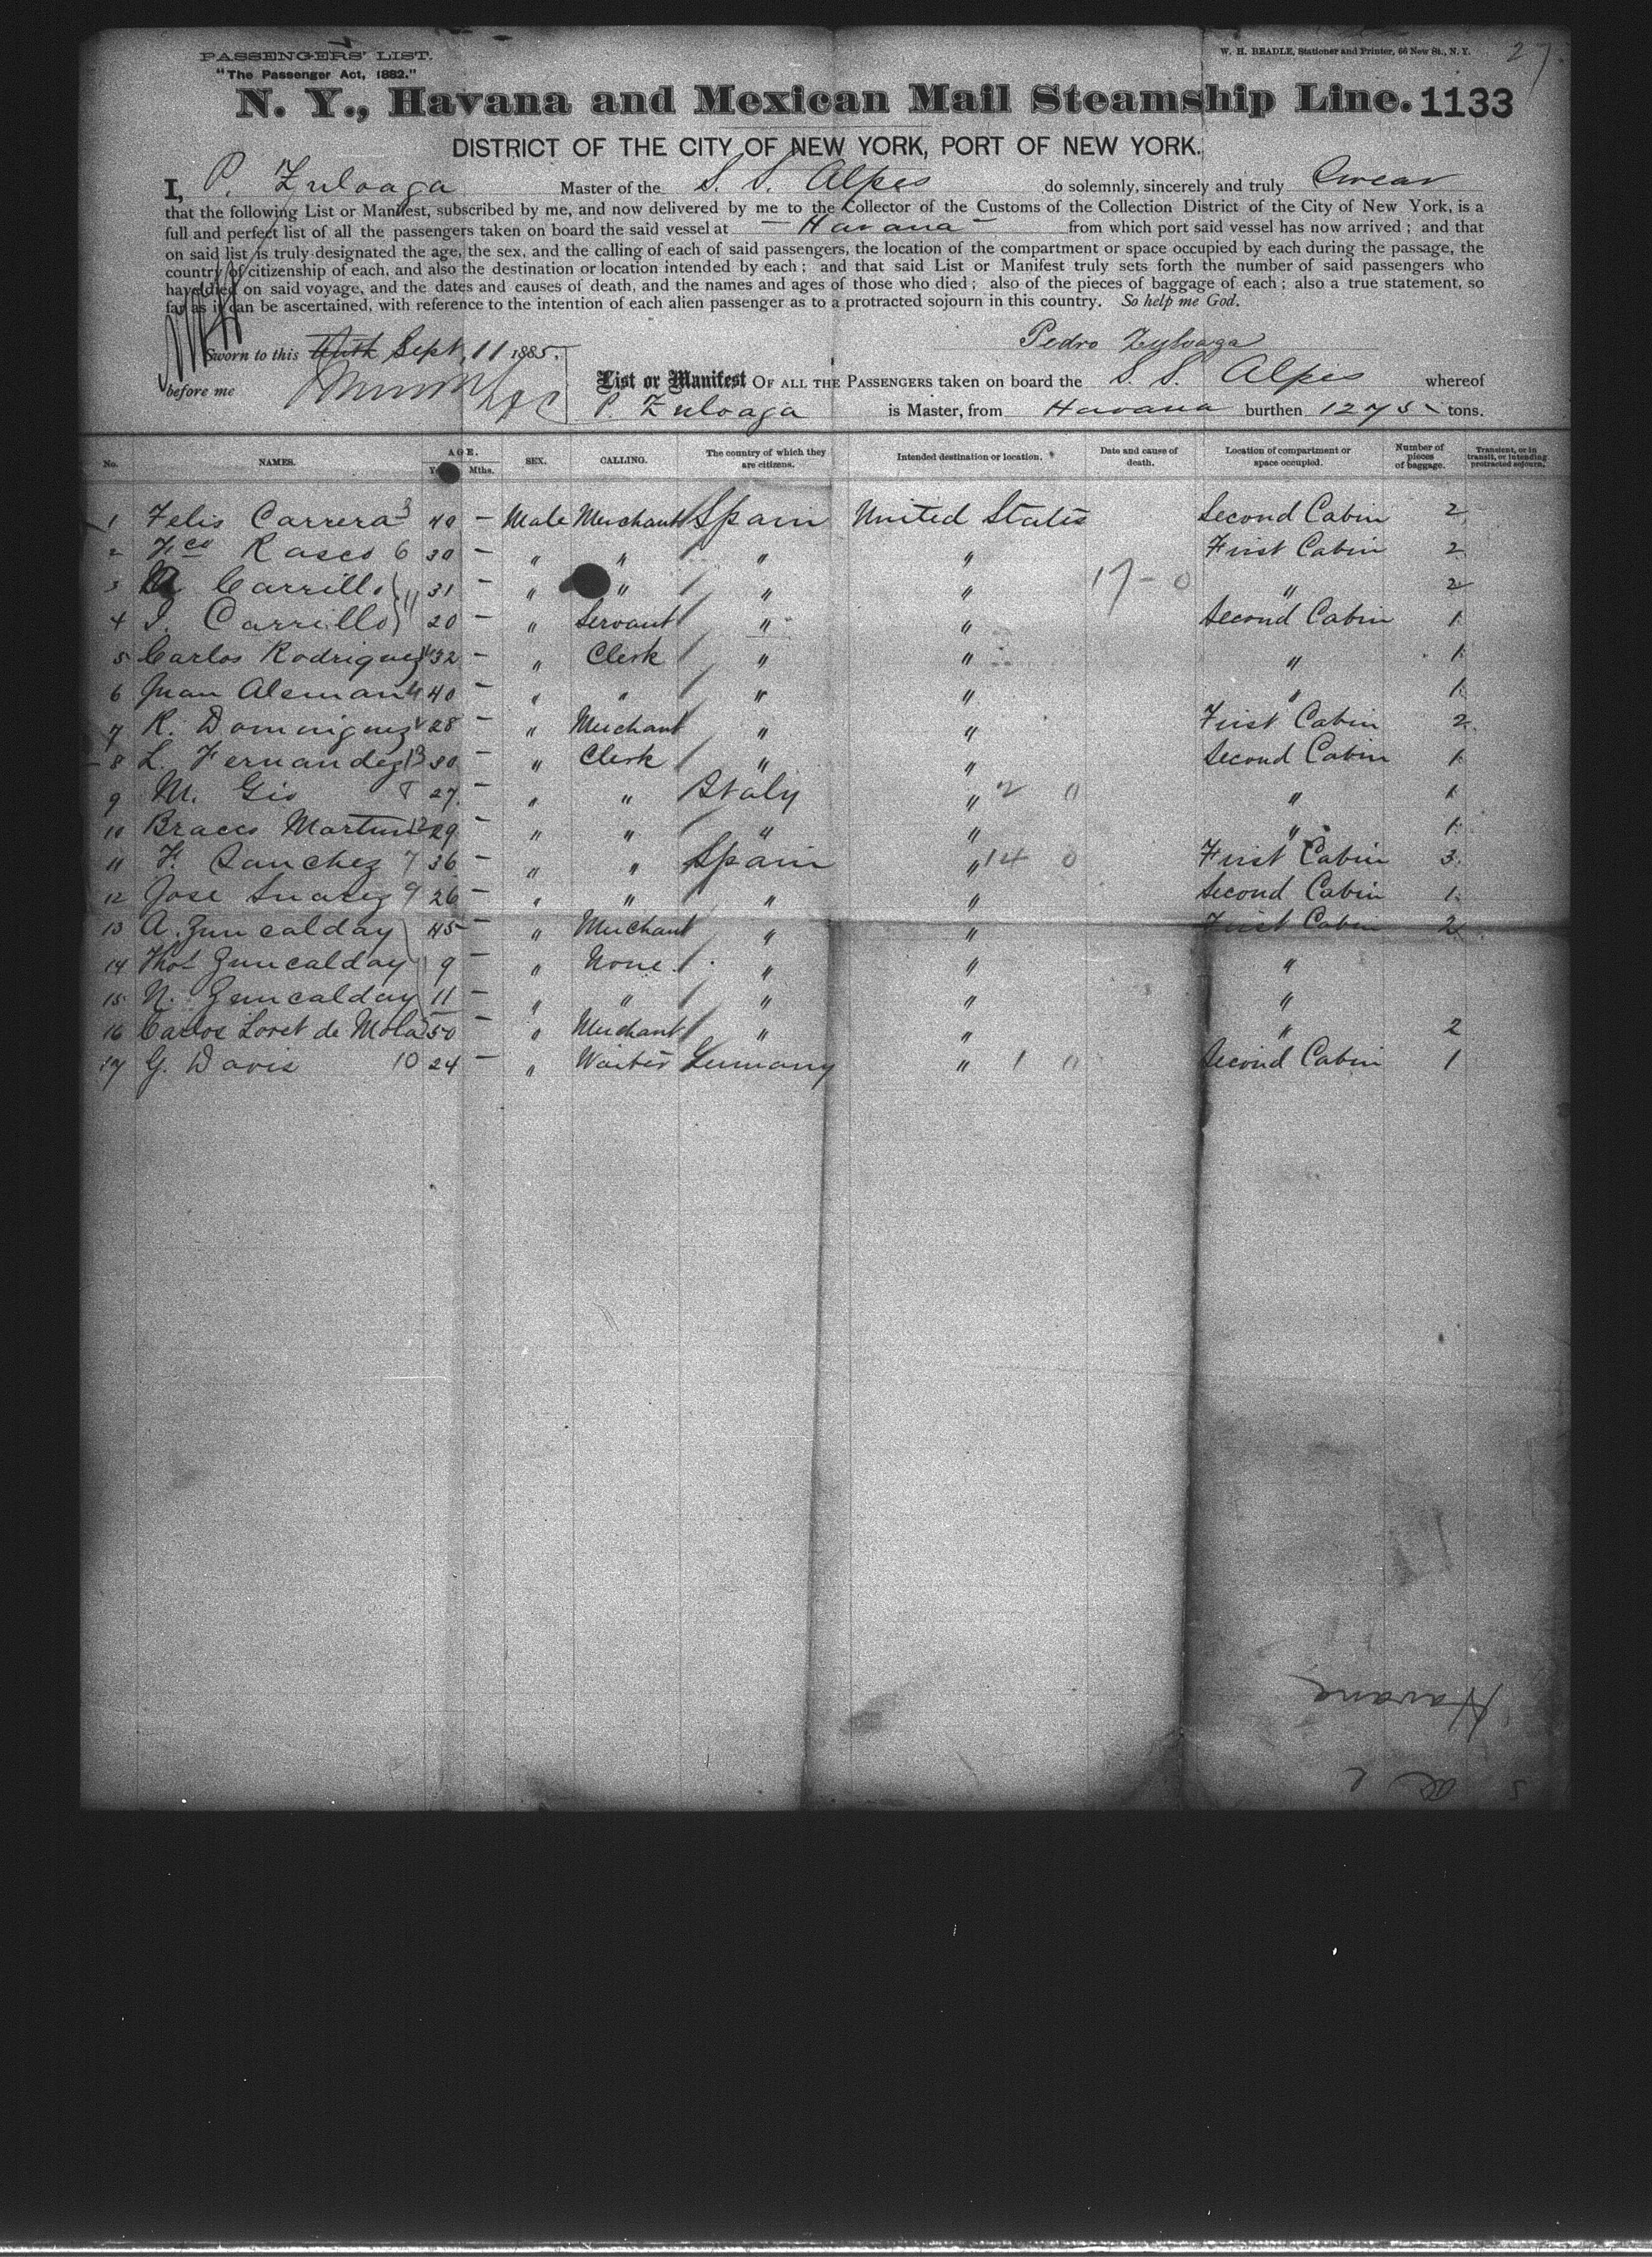 27.
PASSENGERS' LIST.
W. H. BEADLE, Stationer and Printer, 66 New St., N. Y.
"The Passenger Act, 1882."
N. Y., Havana and Mexican Mail Steamship Line. 1133
DISTRICT OF THE CITY OF NEW YORK, PORT OF NEW YORK.
I, P. Zuloaga Master of the S. S. Alpes do solemnly, sincerely and truly Swear
that the following List or Manifest, subscribed by me, and now delivered by me to the Collector of the Customs of the Collection District of the City of New York, is a
full and perfect list of all the passengers taken on board the said vessel at Havana from which port said vessel has now arrived; and that
on said list is truly designated the age, the sex, and the calling of each of said passengers, the location of the compartment or space occupied by each during the passage, the
country of citizenship of each, and also the destination or location intended by each; and that said List or Manifest truly sets forth the number of said passengers who
have died on said voyage, and the dates and causes of death, and the names and ages of those who died; also of the pieces of baggage of each; also a true statement, so
far as it can be ascertained, with reference to the intention of each alien passenger as to a protracted sojourn in this country. So help me God.
Pedro Zuloaga
Sworn to this Sept. 11 1885.
before me
List or Manifest OF ALL THE PASSENGERS taken on board the S. S. Alpes whereof
P. Zuloaga is Master, from Havana burthen 1275 tons.
No. NAMES. AGE. Mths. SEX. CALLING. The country of which they are citizens. Intended destination or location. Date and cause of death. Location of compartment or space occupied. Number of pieces of baggage. Transient, or in transit, or intending protracted sojourn.
1 Felis Carrera 3 40 – Male Merchant Spain United States Second Cabin 2
2 Fco Rasco 6 30 – " " " " First Cabin 2
3 Carrillo 31 – " " " " 17-0 " 2
4 J. Carrillo 11 20 – " Servant " " Second Cabin 1
5 Carlos Rodriguez 32 – " Clerk " " " 1
6 Juan Aleman 4 40 – " " " " " 1
7 R. Dominguez 28 – " Merchant " " First Cabin 2
8 L. Fernandez 13 30 – " Clerk " " Second Cabin 1
9 M. Gio 8 27 – " " Italy " 2 0 " 1
10 Bracco Martini 12 29 – " " " " " 1
11 F. Sanchez 7 36 – " " Spain " 14 0 First Cabin 3
12 Jose Suarez 9 26 – " " " " Second Cabin 1
13 A. Zuncalday 45 – " Merchant " " First Cabin 2
14 Thos Zuncalday 9 – " None " " "
15 N. Zuncalday 11 – " " " " "
16 Carlos Loret de Mola 50 – " Merchant " " " 2
17 G. Davis 10 24 – " Waiter Germany " 1 0 Second Cabin 1
Havana